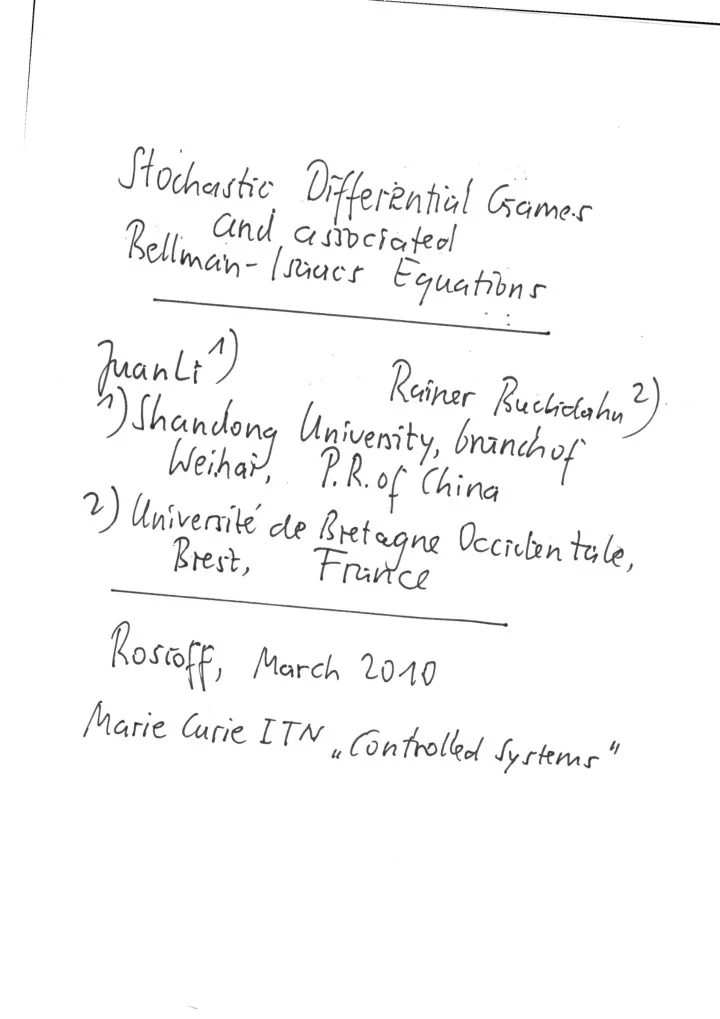 Stochastic Differential Games
and associated
Bellman-Isaacs Equations
Juan Li 1) Rainer Buckdahn 2)
1) Shandong University, branch of
Weihai, P.R. of China
2) Université de Bretagne Occidentale,
Brest, France
Roscoff, March 2010
Marie Curie ITN „Controlled Systems"